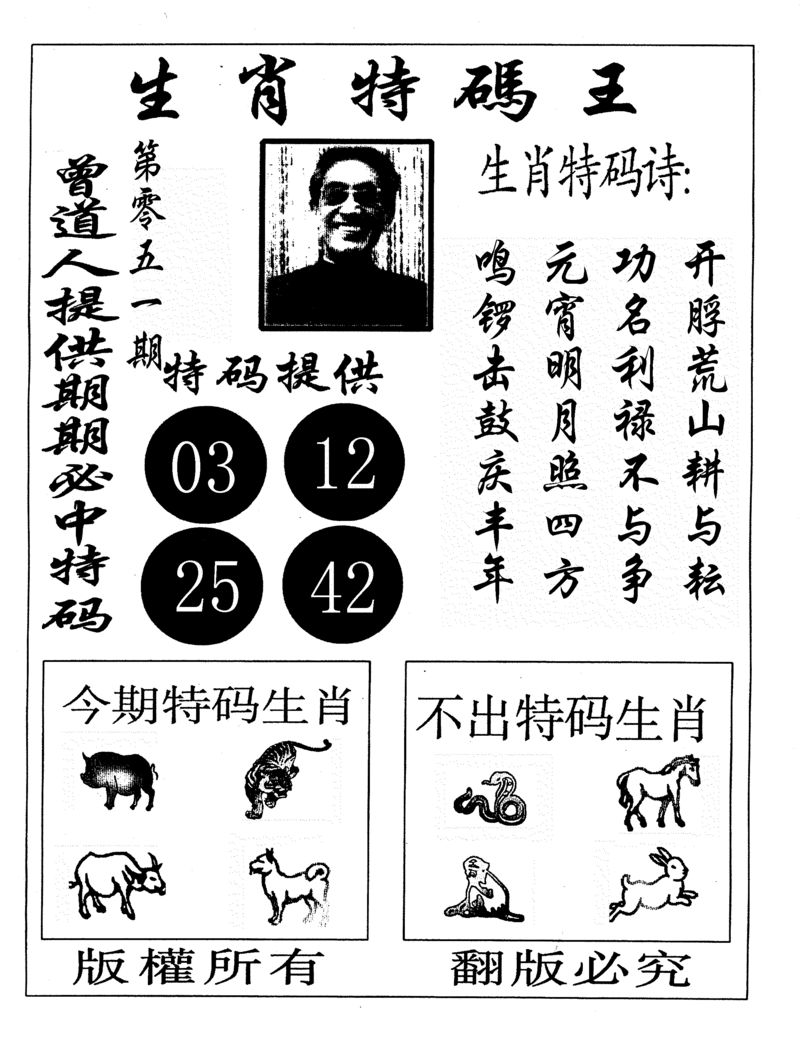 生肖特碼王
第零五一期
曾道人提供期期必中特码
特码提供
03
12
25
42
生肖特码诗:
开脬荒山耕与耘
功名利禄不与争
元宵明月照四方
鸣锣击鼓庆丰年
今期特码生肖
不出特码生肖
版權所有
翻版必究